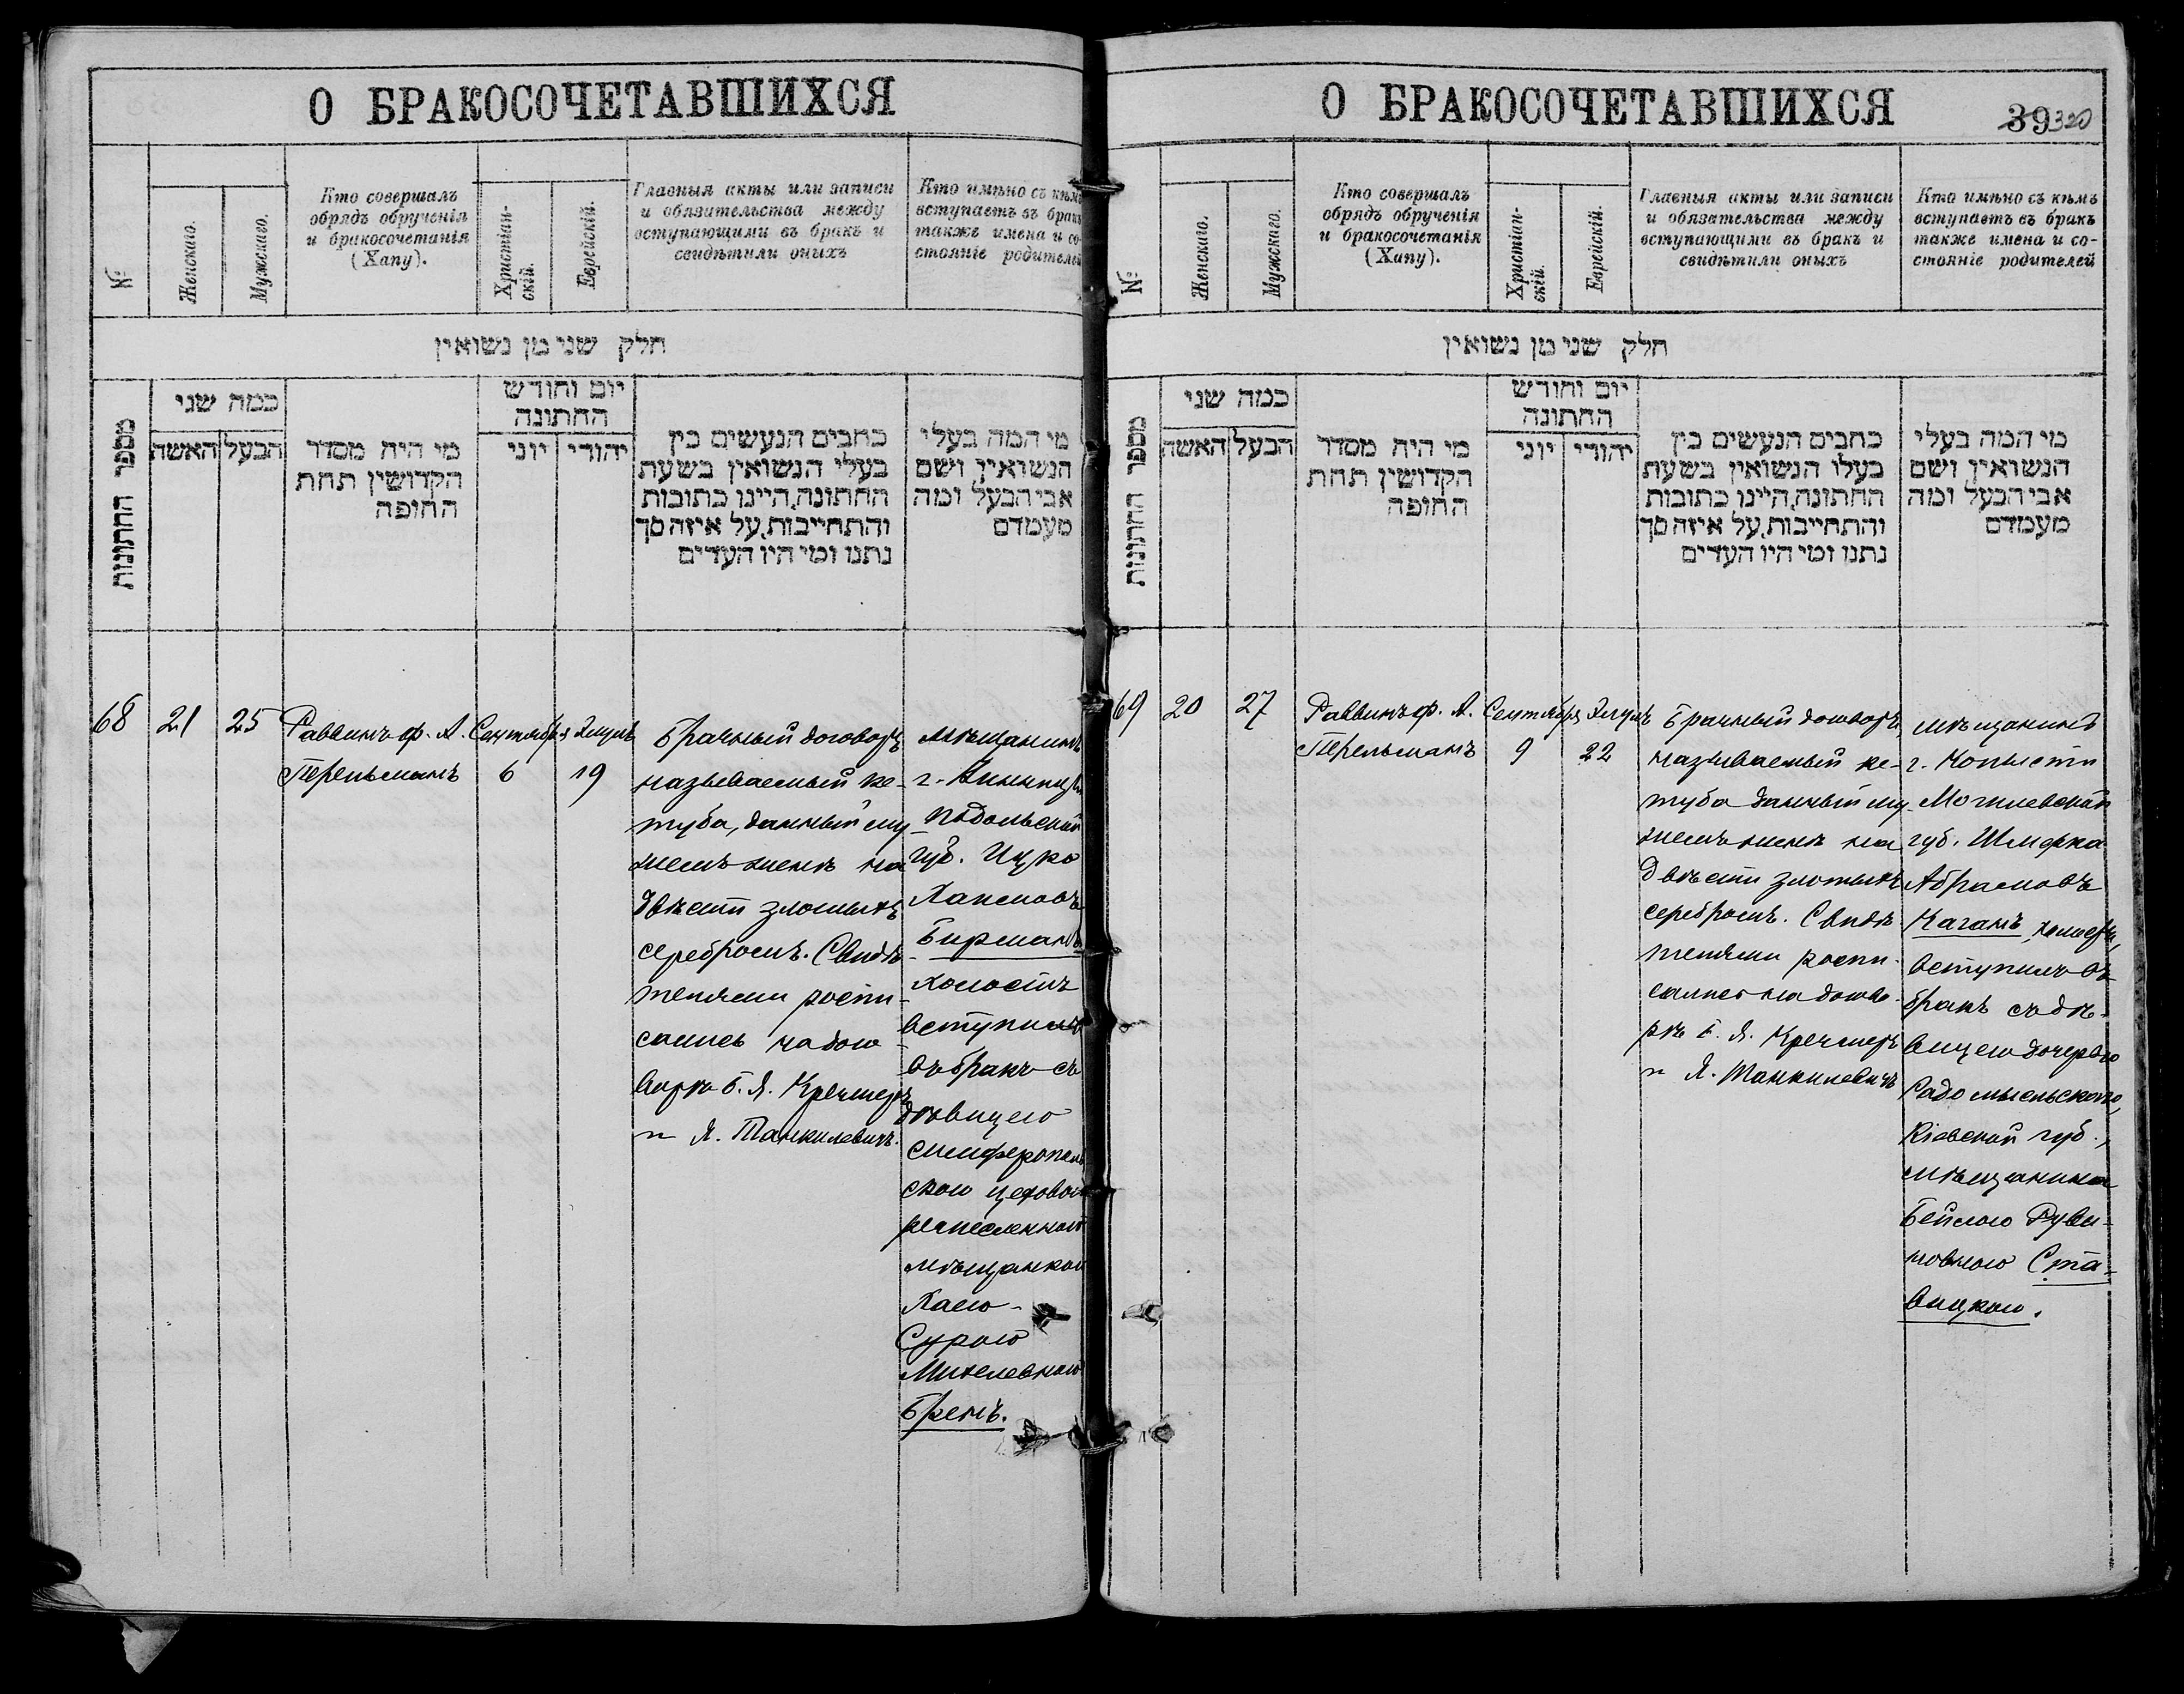 О БРАКОСОЧЕТАВШИХСЯ
№
Женскаго.
Мужскаго.
Кто совершалъ
обрядъ обрученія
и бракосочетанія
(Хапу).
Христіан-
скій.
Еврейскій.
Главныя акты или записи
и обязательства между
вступающими въ бракъ и
свидѣтили оныхъ
Кто имѣно съ кѣмъ
вступаетъ въ бракъ
также имена и со-
стояніе родителей
חלק שני מן נשואין
מספר החתונות
כמה שני
האשה
הבעל
מי היה מסדר
הקדושין תחת
החופה
יום וחודש
החתונה
יוני
יהודי
כתבים הנעשים בין
בעלי הנשואין בשעת
החתונה, היינו כתובות
והתחייבות, על איזה סך
נתנו ומי היו העדים
מי המה בעלי
הנשואין ושם
אבי הבעל ומה
מעמדם
68
21
25
Раввинъ ф. А.
Перельманъ
Сентября
6
Элулъ
19
Брачный договоръ
называемый ке-
туба, данный му
жемъ женѣ на
двѣсти злотыхъ
серебромъ. Свидѣ
телями роспи-
сались на дого
ворѣ Б. Я. Кречмеръ
и Я. Танкилевичъ.
Мѣщанинъ
г. Винницы
Подольской
губ. Ицко
Хаимовъ
Бирманъ
холостъ
вступилъ
въ бракъ съ
дѣвицею
симферополь
скою цеховою
ремесленной
мѣщанкой
Хаею-
Сурою
Михелевною
Бремъ.
О БРАКОСОЧЕТАВШИХСЯ
39 320
№
Женскаго.
Мужскаго.
Кто совершалъ
обрядъ обрученія
и бракосочетанія
(Хапу).
Христіан-
скій.
Еврейскій.
Главныя акты или записи
и обязательства между
вступающими въ бракъ и
свидѣтили оныхъ
Кто имѣно съ кѣмъ
вступаетъ въ бракъ
также имена и со-
стояніе родителей
חלק שני מן נשואין
מספר החתונות
כמה שני
האשה
הבעל
מי היה מסדר
הקדושין תחת
החופה
יום וחודש
החתונה
יוני
יהודי
כתבים הנעשים בין
בעלו הנשואין בשעת
החתונה, היינו כתובות
והתחייבות, על איזה סך
נתנו ומי היו העדים
מי המה בעלי
הנשואין ושם
אבי הבעל ומה
מעמדם
69
20
27
Раввинъ ф. А.
Перельманъ
Сентября
9
Элулъ
22
Брачный договоръ
называемый ке-
туба данный му
жемъ женѣ на
двѣсти злотыхъ
серебромъ. Свидѣ
телями роспи-
сались на дого-
рѣ Б. Я. Кречмеръ
и Я. Танкилевичъ
мѣщанинъ
г. Копысти
Могилевской
губ. Шмерка
Абрамовъ
Каганъ, холостъ,
вступилъ въ
бракъ съ дѣ-
вицею дочерью
Радомысльскаго,
Кіевской губ.,
мѣщанина
Бейлою Руви-
новною Ста-
вицкою.